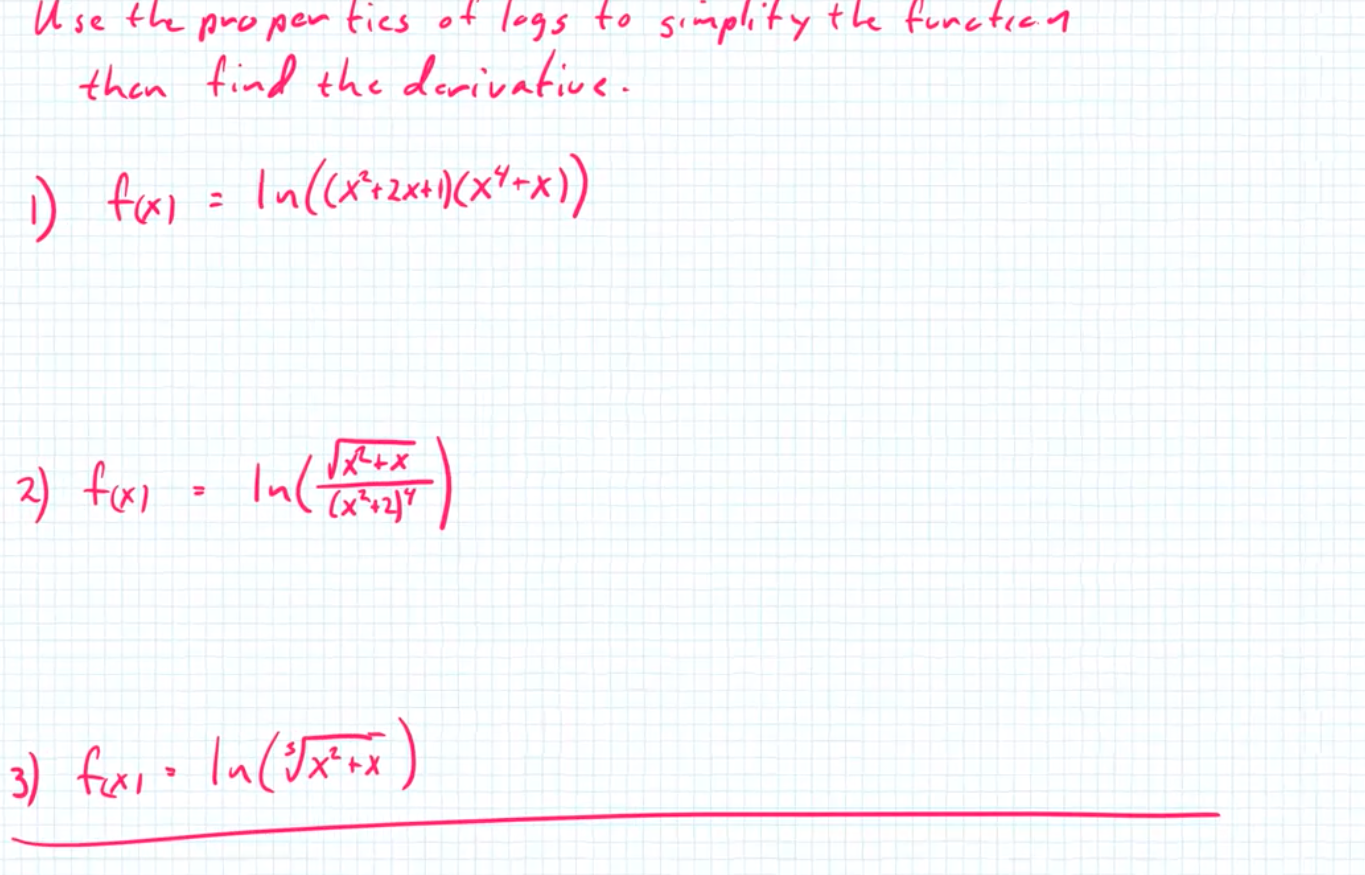 Use the properties of logs to simplify the function
then find the derivative.
1) f(x) = ln((x²+2x+1)(x⁴+x))
2) f(x) = ln(√(x²+x) / (x²+2)⁴)
3) f(x) = ln(⁵√(x²+x))